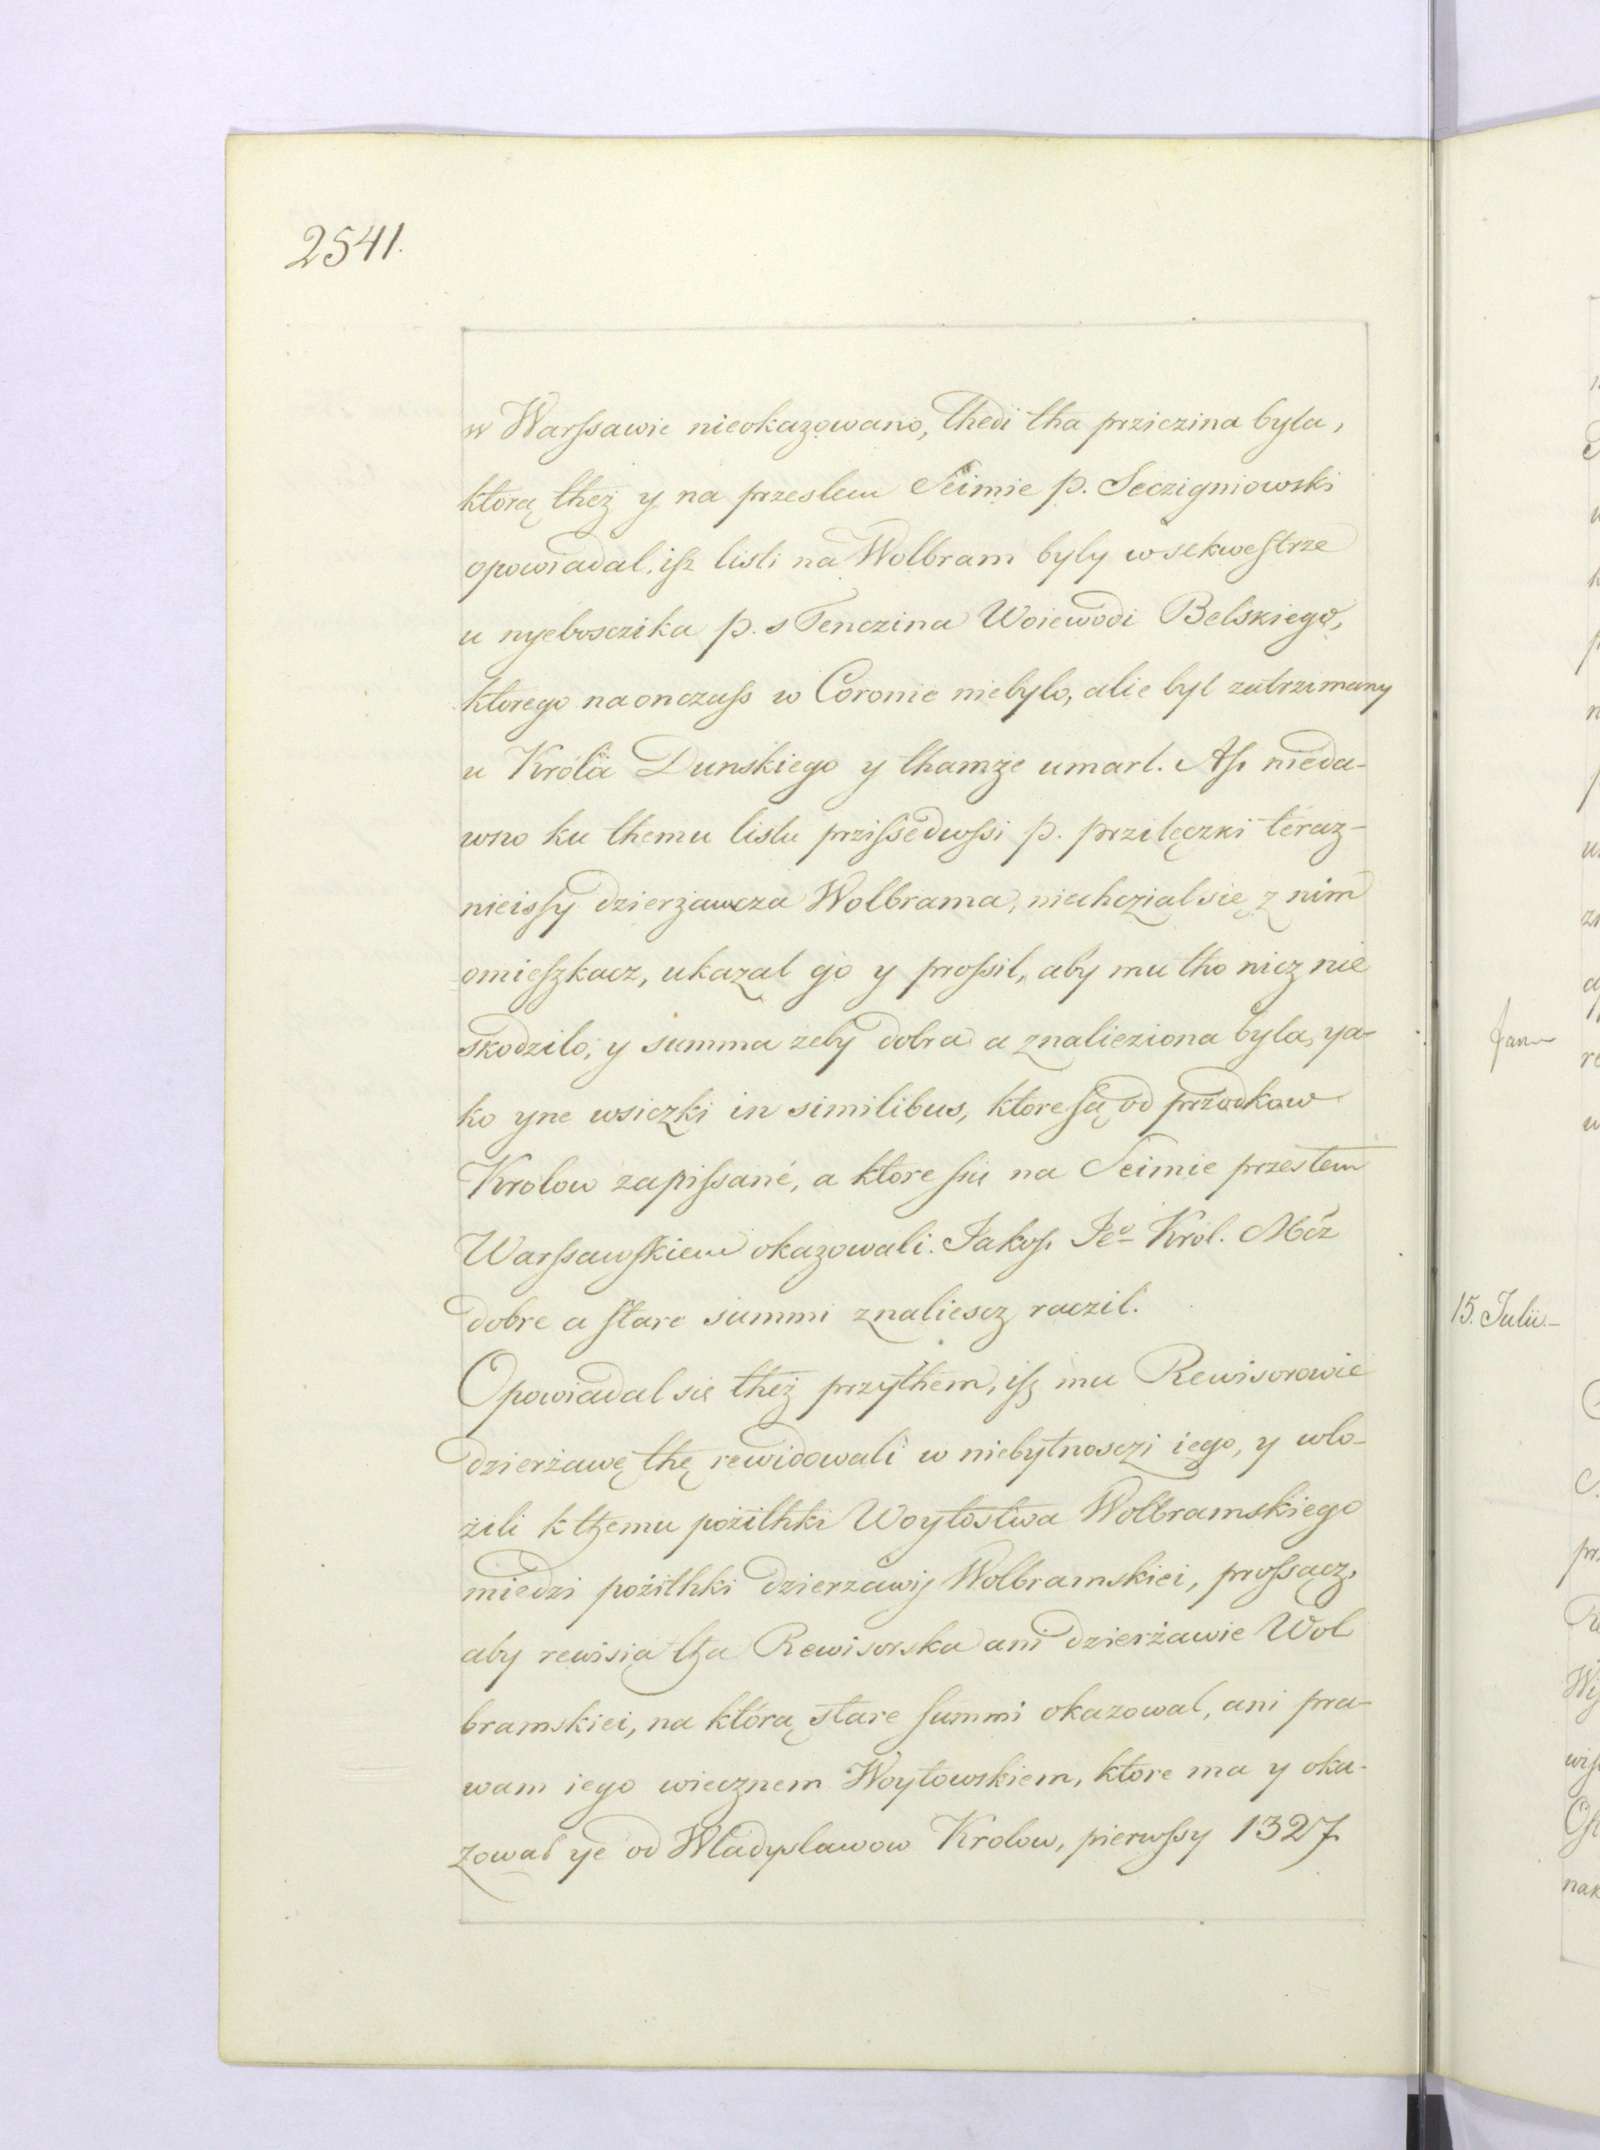 2541.
w Warssawie nieokazowano, thedi tha przicina byla,
którą theż y na przeslem Seimie p. Secigniowski
opowiadal, isz listi na Wolbram byly w sekwestrze
u nyeboszcika p. s Tenczina Woiewodi Belskiego,
ktorego na onczass w Coronie niebylo, alie byl zatrzimany
u Królia Dunskiego y thamże umarl. Asz nieda-
wno ku themu listu przissedwssi p. Przilęczki teraz-
nieissy dzierzawcza Wolbrama, niechczial się z nim
omieszkacz, ukazal go y prossil, aby mu tho nicz nie
skodzilo, y summa zeby dobra a znalieziona byla, ya-
ko yne wsiczki in similibus, ktore są od przodkow
Krolow zapissané, a ktore się na Seimie przeslem
Warssawskiem okazowali. Jakosz Jeº Król. Mcz
dobre a stare summi znaliescz raczil.
Opowiadal się theż przythem, isz mu Rewisorowie
dzierżawę thę rewidowali w niebytnosczi iego, y wlo-
żili k themu pożithki Woytostwa Wolbramskiego
miedzi pożithki dzierzawij Wolbramskiei, prossącz,
aby rewisia tha Rewisorska ani dzierżawie Wol
bramskiei, na którą stare summi okazowal, ani pra-
wam iego wiecznem Woytowskiem, ktore ma y oka-
zowal ye od Wladyslawow Krolow, pierwssy 1327
15. Julii.